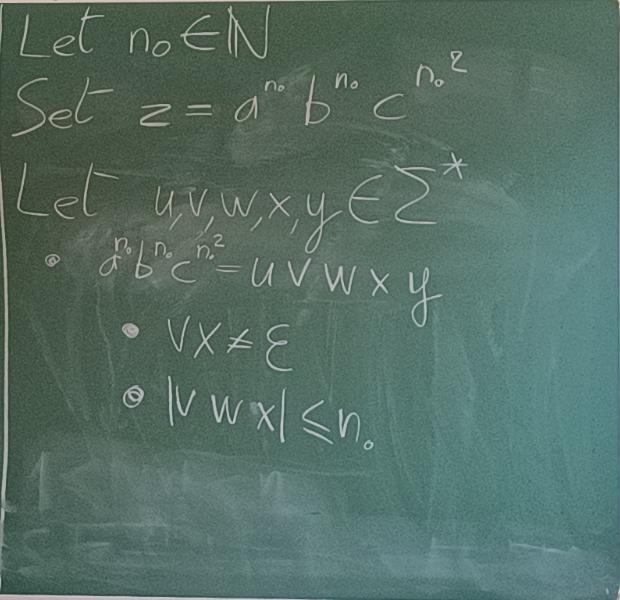 Let n₀ ∈ ℕ
Set z = a^{n₀} b^{n₀} c^{n₀²}
Let u,v,w,x,y ∈ Σ*
• a^{n₀} b^{n₀} c^{n₀²} = u v w x y
• vx ≠ ε
• |v w x| ≤ n₀